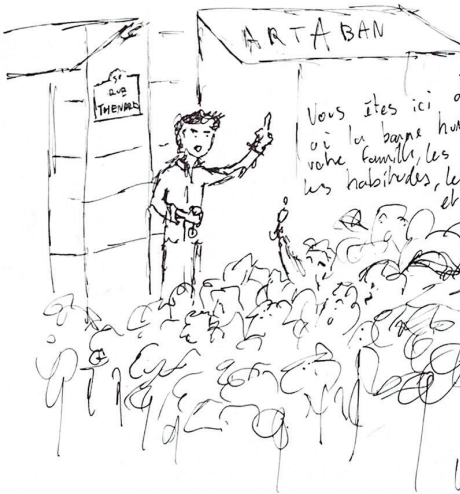 ARTABAN
5e
RUE
THENARD
Vous êtes ici
où la bonne hum
votre famille, les
les habitudes, le
et